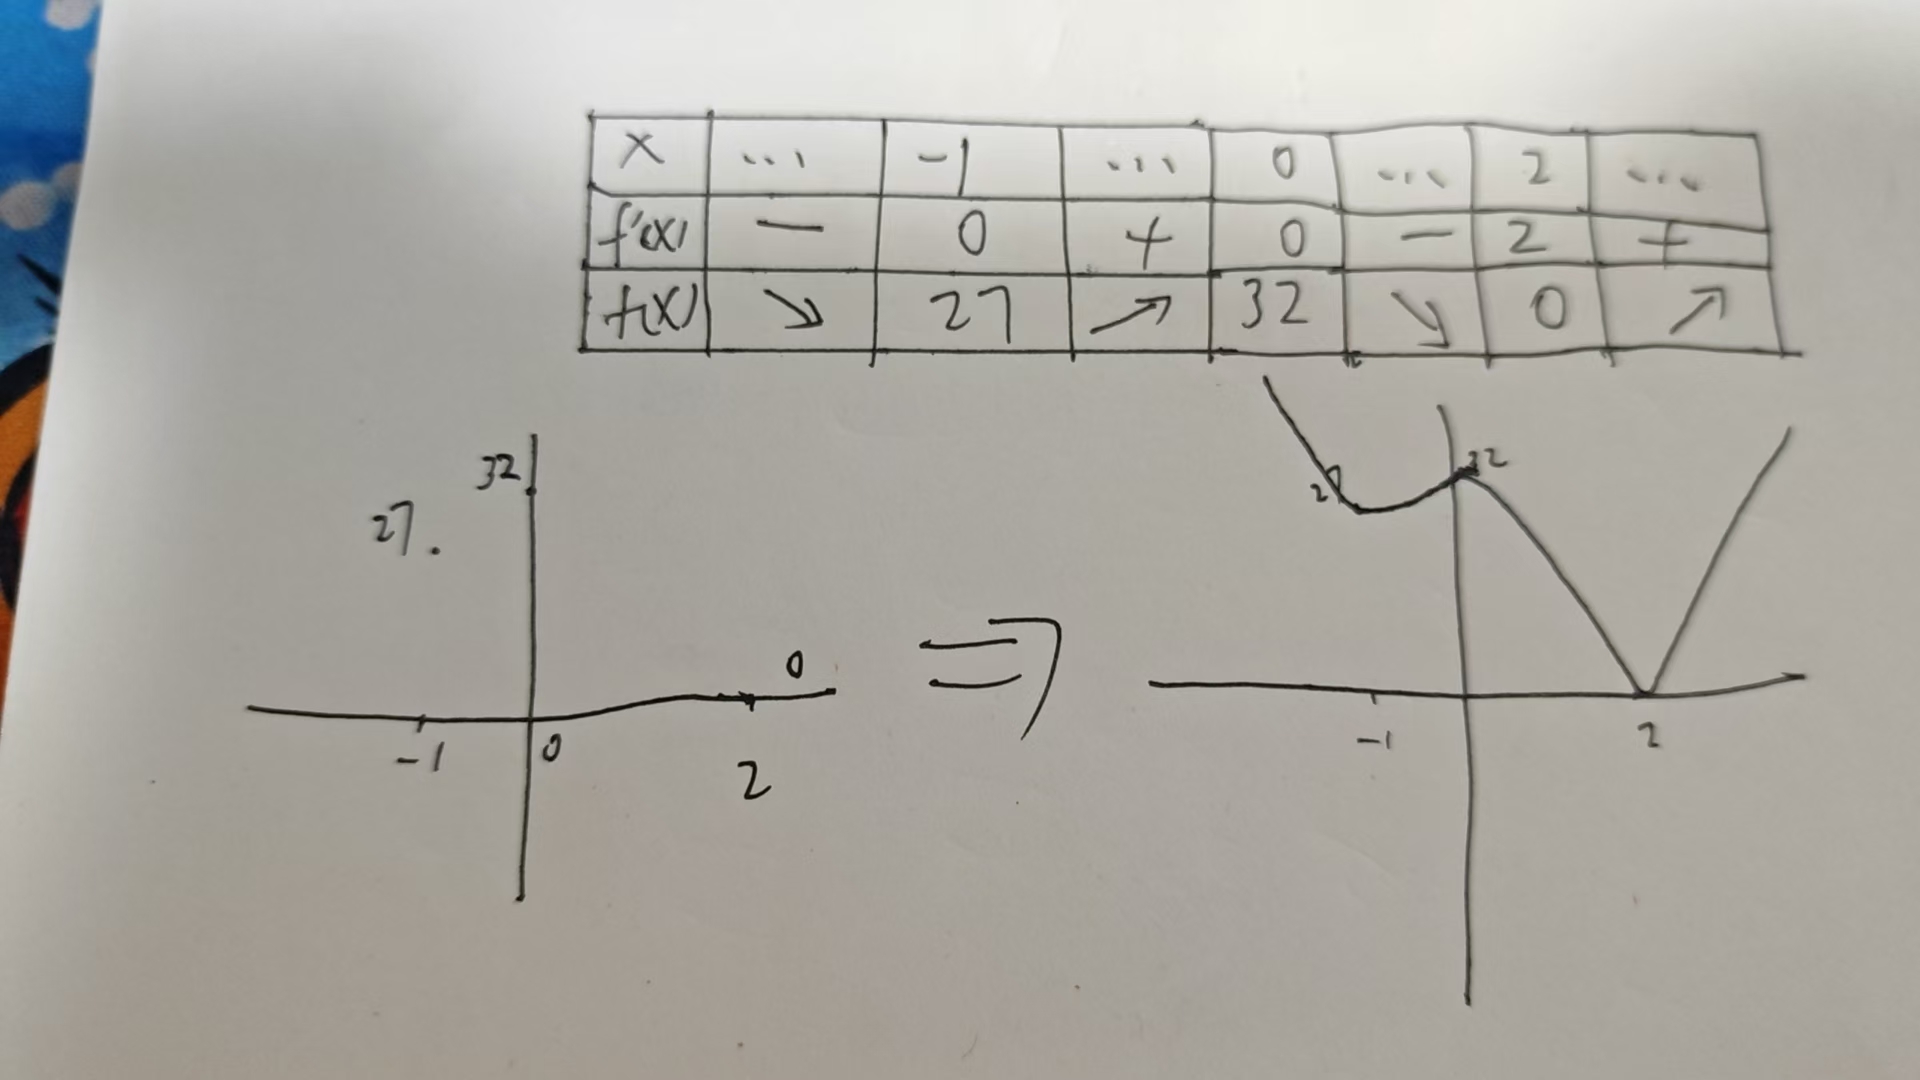 x ... -1 ... 0 ... 2 ...
f'(x) - 0 + 0 - 2 +
f(x) ↘ 27 ↗ 32 ↘ 0 ↗
32
27.
0
-1 0 2
⇒
32
27
-1 2